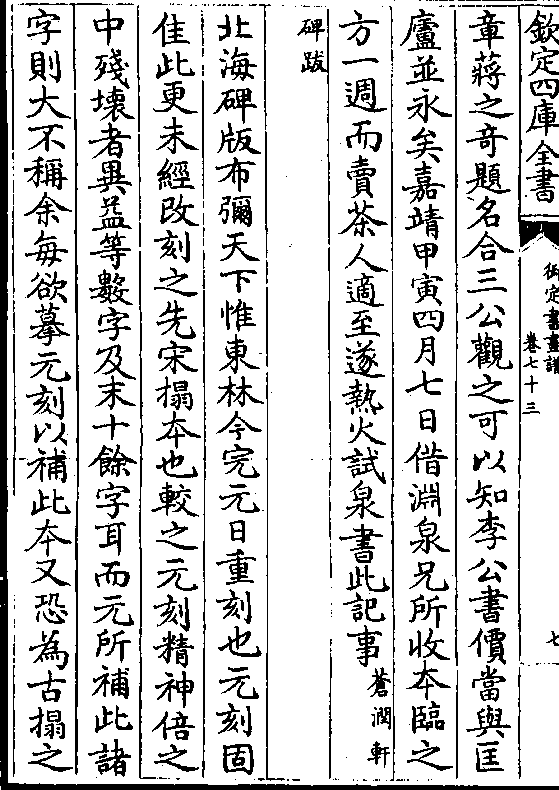 欽定四庫全書
御定書畫譜
卷七十三
七
章蔣之竒題名合三公觀之可以知李公書價當與匡
廬並永矣嘉靖甲寅四月七日借淵泉兄所收本臨之
方一週而賣茶人適至遂熱火試泉書此記事
蒼潤軒
碑跋
北海碑版布彌天下惟東林今完元日重刻也元刻固
佳此更未經改刻之先宋搨本也較之元刻精神倍之
中殘壊者異益等數字及末十餘字耳而元所補此諸
字則大不稱余每欲摹元刻以補此本又恐為古搨之